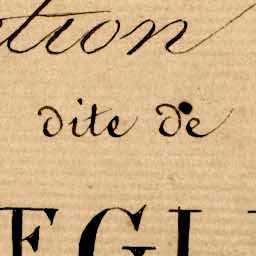 tion
dite de
EGLI